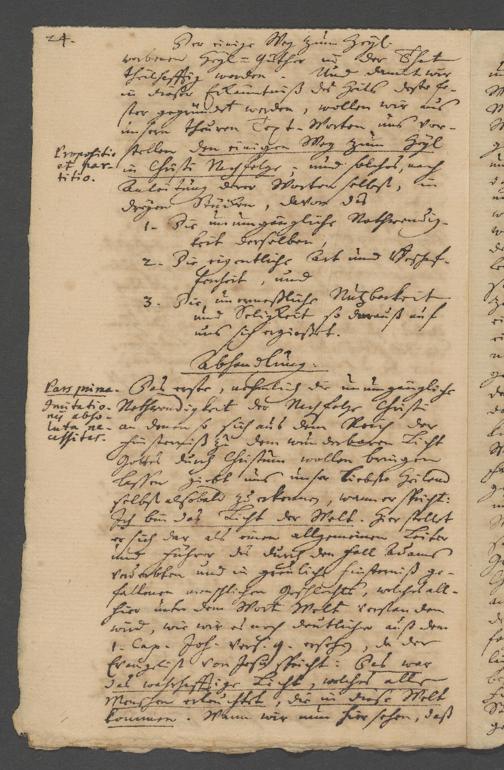 24.
Der einige Weg zum Heyl.
worbenen Heyl-Güther in der That
theilhafftig werden. Und damit wir
in dieser Erkäntniß des Heils desto fe-
ster gegründet werden, wollen wir aus
unsern theuren Text-Worten uns vor-
stellen den einigen Weg zum Heyl
Propositio
et par-
titio.
in Christi Nachfolge, und solches, nach
Anleitung derer Worten selbst, in
dreyen Stücken, davon das
1. Die unumgängliche Nothwendig-
keit derselben,
2. Die eigentliche Art und Beschaf-
fenheit, und
3. Die unermeßliche Nutzbarkeit
und Seligkeit so darauß auf
uns sich ergiesset.
Abhandlung.
Pars prima.
Imitatio-
nis abso-
luta ne-
cessitas.
Das erste, nehmlich die unumgängliche
Nothwendigkeit der Nachfolge Christi
an denen so sich aus dem Reich der
Finsterniß zu dem wunderbaren Licht
Gottes durch Christum wollen bringen
lassen giebt uns unser liebster Heiland
selbst alsobald zu erkennen, wann er spricht:
Ich bin das Licht der Welt. Hier stellet
er sich dar als einen allgemeinen Leiter
und Führer des durch den Fall Adams
verderbten und in greuliche Finsterniß ge-
fallenen menschlichen Geschlechts, welches all-
hier unter dem Wort Welt verstanden
wird, wie wir es noch deutlicher auß dem
1. Cap. Joh. vers. 9. ersehen, da der
Evangelist von Jesu spricht: Das war
das wahrhafftige Licht, welches alle
Menschen erleuchtet, die in diese Welt
kommen. Wann wir nun hier sehen, daß